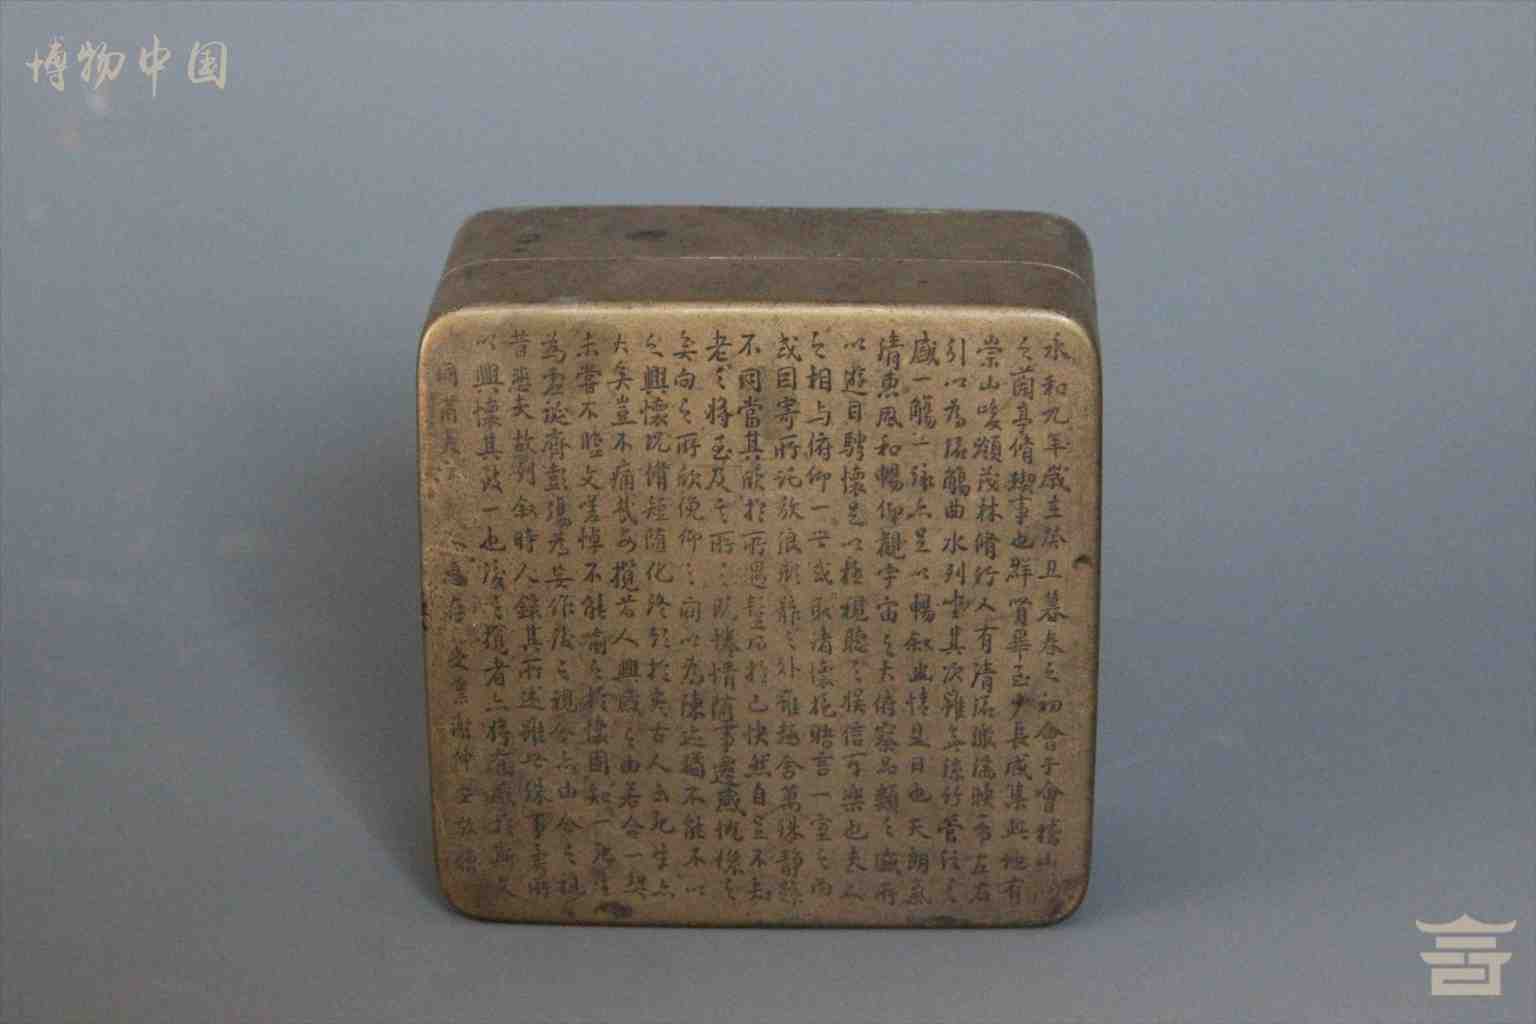 博物中国
永和九年歲在癸丑暮春之初會于會稽山陰
之蘭亭脩禊事也群賢畢至少長咸集此地有
崇山峻領茂林脩竹又有清流激湍映帶左右
引以為流觴曲水列坐其次雖無絲竹管弦之
盛一觴一詠亦足以暢敘幽情是日也天朗氣
清惠風和暢仰觀宇宙之大俯察品類之盛所
以遊目騁懷足以極視聽之娛信可樂也夫人
之相与俯仰一世或取諸懷抱晤言一室之內
或因寄所託放浪形骸之外雖趣舍萬殊靜躁
不同當其欣於所遇暫得於己快然自足不知
老之將至及其所之既惓情隨事遷感慨係之
矣向之所欣俛仰之間以為陳迹猶不能不以
之興懷況脩短隨化終期於盡古人云死生亦
大矣豈不痛哉每攬昔人興感之由若合一契
未嘗不臨文嗟悼不能喻之於懷固知一死生
為虛誕齊彭殤為妄作後之視今亦由今之視
昔悲夫故列敘時人錄其所述雖世殊事異所
以興懷其致一也後之攬者亦將有感於斯文
甫 存 受業謝仲 敬贈